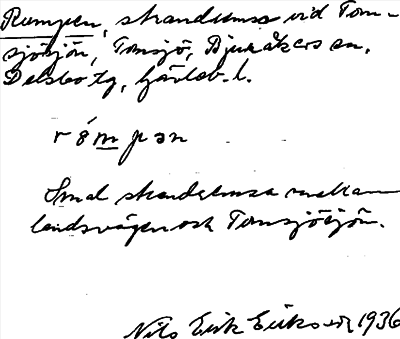 Rumpen, strandremsa vid Tom-
sjösjön, Tomsjö, Bjuråkers sn.
Delsbo tg, Gävleb. l.
rómpan
Smal strandremsa mellan
landsvägen och Tomsjösjön.
Nils Erik Eriksson 1936